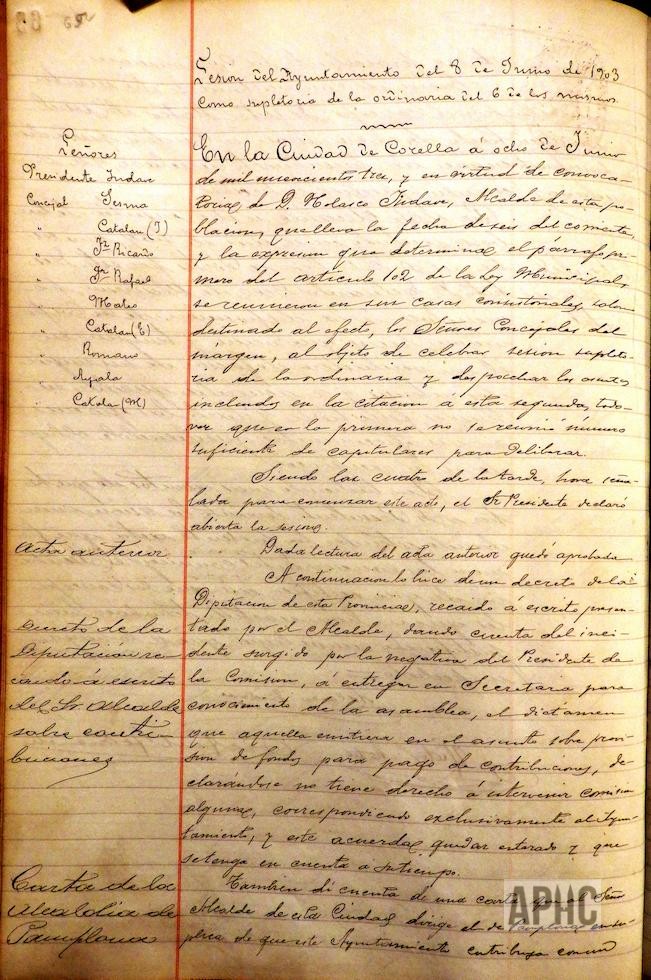 Sesion del Ayuntamiento del 8 de Junio de 1903
como supletoria de la ordinaria del 6 de los mismos
Señores
Presidente Indave
Concejal Sesma
" Catalan (J)
" Jz Ricardo
" Jz Rafael
" Mateo
" Catalan (E)
" Romano
" Ayala
" Catalan (M)
En la Ciudad de Corella á ocho de Junio
de mil novecientos tres, y en virtud de convoca-
toria, de D. Nolasco Indave, Alcalde de esta po-
blacion, que lleva la fecha de seis del corriente,
y la expresion que determina el párrafo pri-
mero del articulo 102 de la Ley Municipal,
se reunieron en sus casas consistoriales, salon
destinado al efecto, los Señores Concejales del
márgen, al objeto de celebrar sesion supleto-
ria de la ordinaria y despachar los asuntos
incluidos en la citacion á esta segunda, toda
vez que en la primera no se reunió número
suficiente de capitulares para deliberar.
Siendo las cuatro de la tarde, hora seña-
lada para comenzar este acto, el Sr Presidente declaró
abierta la sesion.
Acta anterior
Dada lectura del acta anterior quedó aprobada
A continuacion lo hice de un decreto de la
Diputacion de esta Provincia, recaido á escrito presen-
tado por el Alcalde, dando cuenta del inci-
dente surgido por la negativa del Presidente de
la Comision, á entregar en Secretaria para
conocimiento de la asamblea, el dictamen
que aquella emitiera en el asunto sobre provi-
sion de fondos para pago de contribuciones, de-
clarándose no tiene derecho á intervenir comision
alguna, correspondiendo exclusivamente al Ayun-
tamiento, y este acuerda quedar enterado y que
se tenga en cuenta a su tiempo.
Decreto de la
Diputacion re-
caido a escrito
del Sr. Alcalde
sobre contri-
buciones
Carta de la
Alcaldia de
Pamplona
Tambien di cuenta de una carta que al Señor
Alcalde de esta Ciudad dirige el de Pamplona en su-
plica de que este Ayuntamiento contribuya con un
APHC